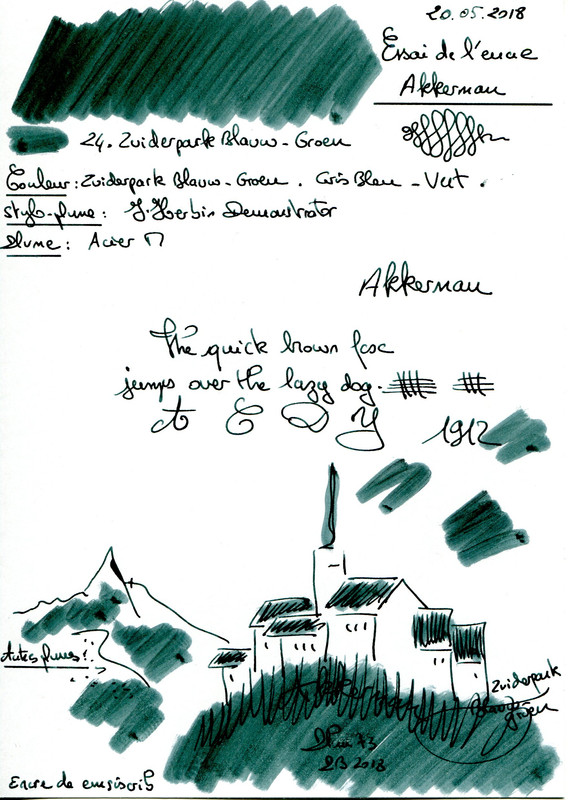 20.05.2018
Essai de l'encre
Akkerman
24. Zuiderpark Blauw-Groen
Couleur: Zuiderpark Blauw-Groen. Gris Bleu-Vert.
Stylo-plume: J. Herbin Demonstrator
Plume: Acier M
Akkerman
The quick brown fox
jumps over the lazy dog.
A E D Y 1912
Autres plumes?
Zuiderpark
Blauw
Groen
73
2018
Encre de